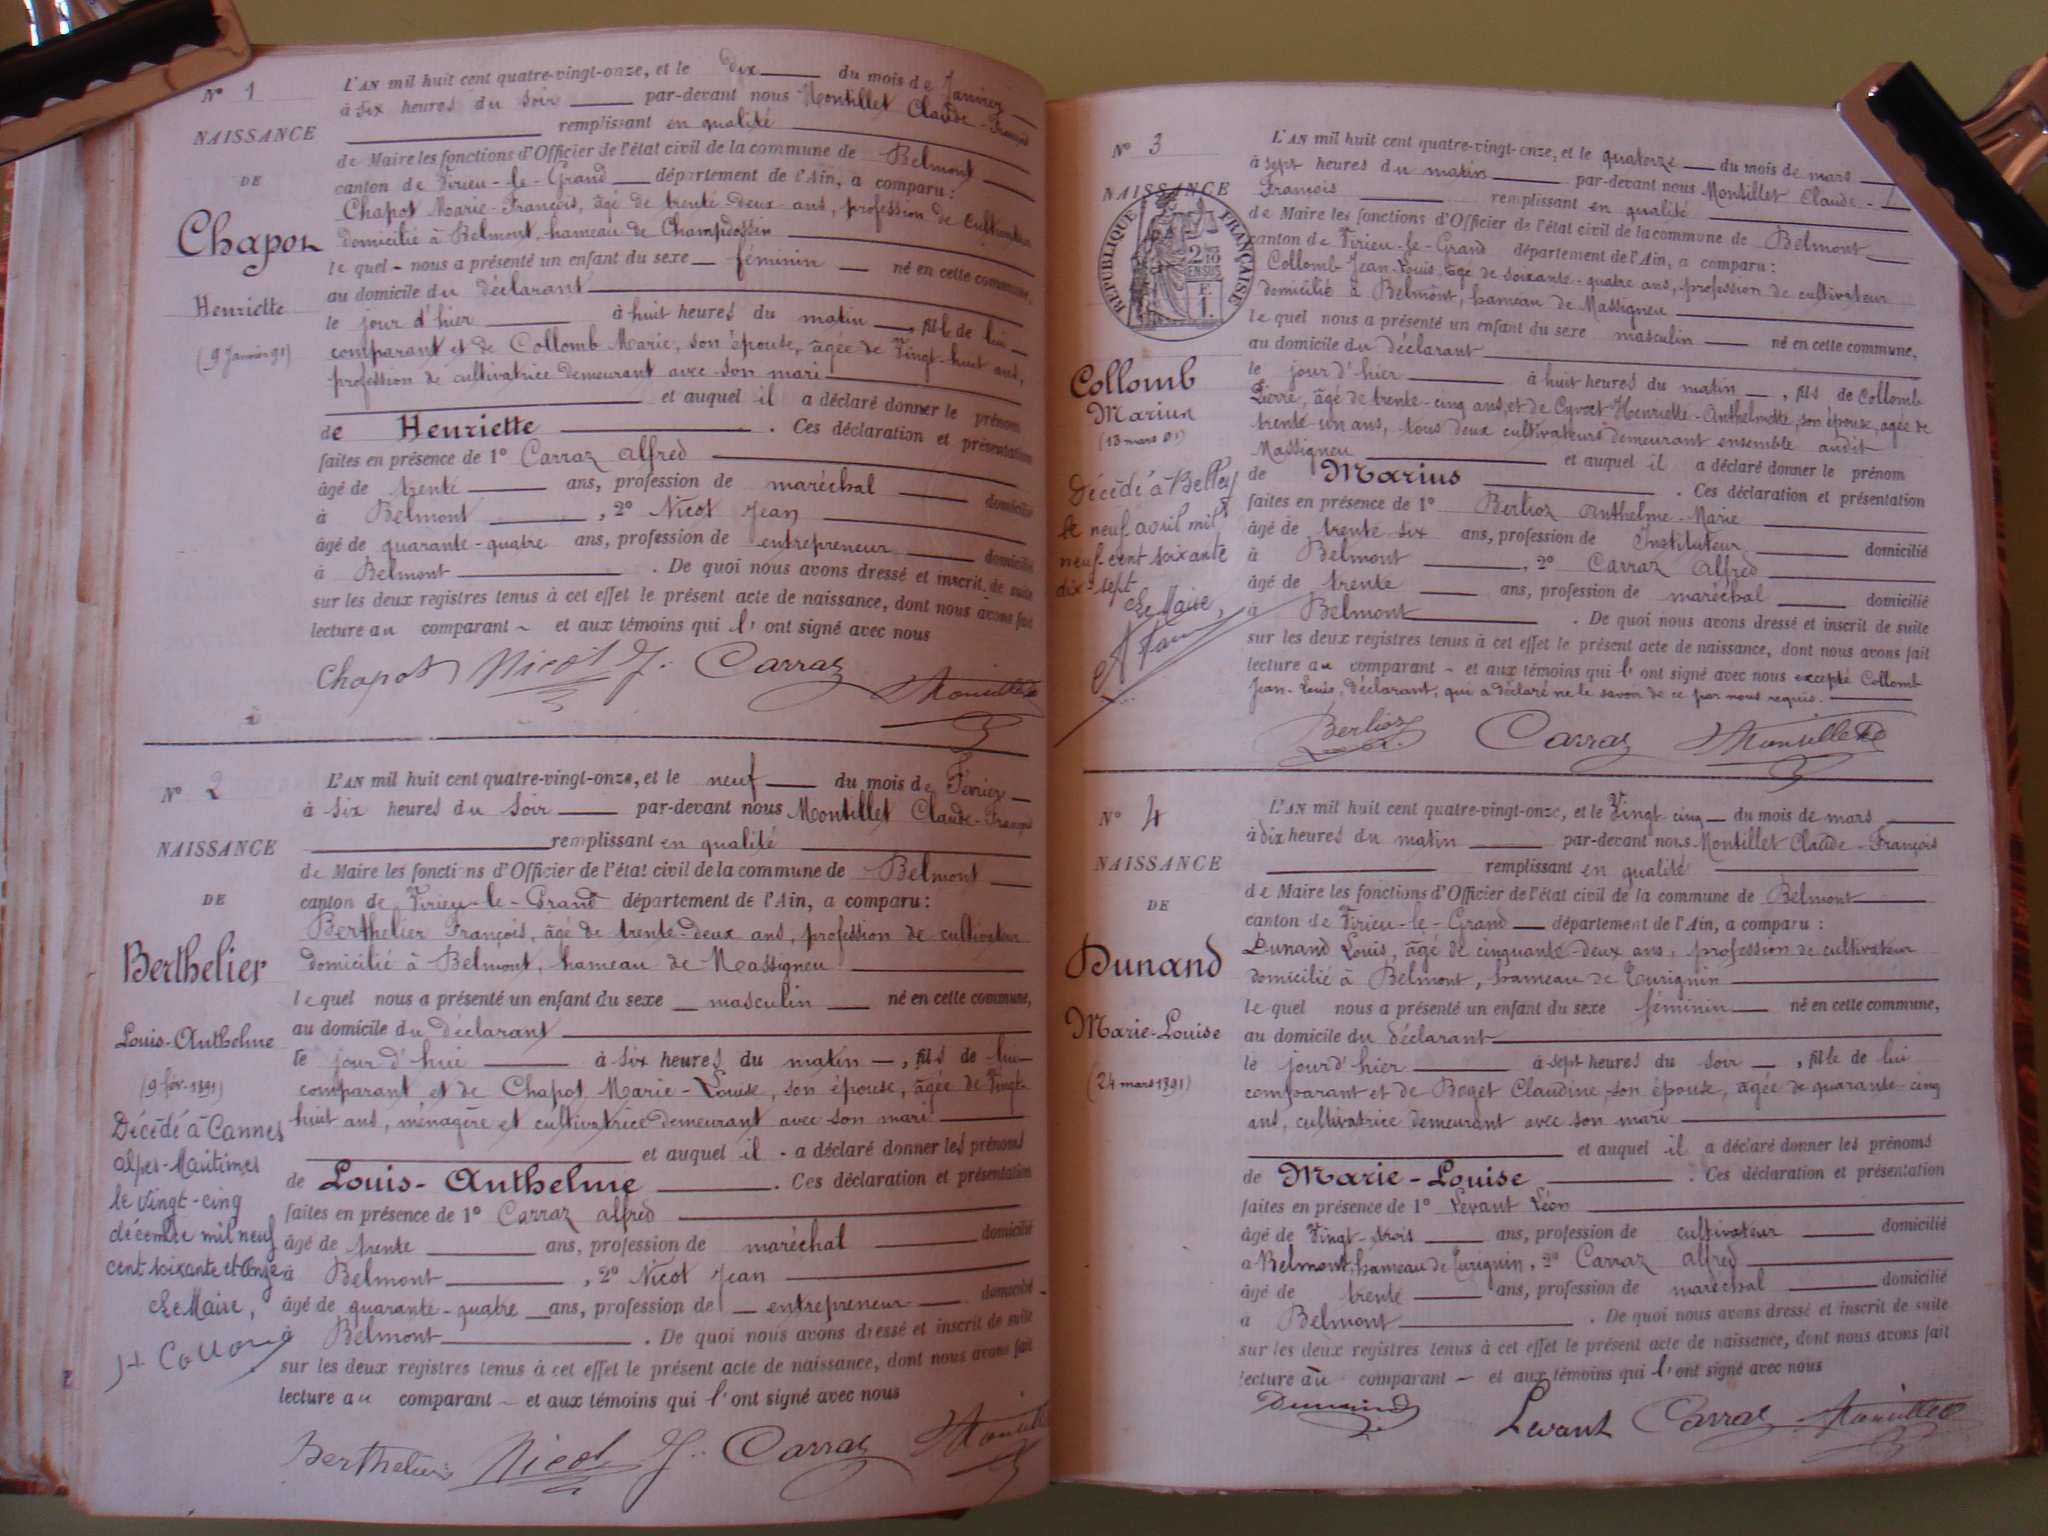 N° 1
NAISSANCE
DE
Chapot
Henriette
(9 Janvier 91)
L'AN mil huit cent quatre-vingt-onze, et le dix du mois de Janvier
à six heures du soir par-devant nous Montillet Claude-François
remplissant en qualité
de Maire les fonctions d'Officier de l'état civil de la commune de Belmont
canton de Virieu-le-Grand département de l'Ain, a comparu :
Chapot Marie-François, âgé de trente-deux ans, profession de cultivateur
domicilié à Belmont, hameau de Champdossin
le quel nous a présenté un enfant du sexe féminin né en cette commune,
au domicile du déclarant
le jour d'hier à huit heures du matin, fille de lui
comparant et de Collomb Marie, son épouse, âgée de Vingt-huit ans,
profession de cultivatrice demeurant avec son mari
et auquel il a déclaré donner le prénom
de Henriette. Ces déclaration et présentation
faites en présence de 1° Carraz Alfred
âgé de trente ans, profession de maréchal domicilié
à Belmont, 2° Nicot Jean
âgé de quarante-quatre ans, profession de entrepreneur domicilié
à Belmont. De quoi nous avons dressé et inscrit de suite
sur les deux registres tenus à cet effet le présent acte de naissance, dont nous avons fait
lecture au comparant et aux témoins qui l'ont signé avec nous
Chapot Nicot J. Carraz Montillet
N° 2
NAISSANCE
DE
Berthelier
Louis-Anthelme
(9 fév. 1891)
Décédé à Cannes
Alpes-Maritimes
le vingt-cinq
décembre mil neuf
cent soixante et onze
Le Maire,
L'AN mil huit cent quatre-vingt-onze, et le neuf du mois de Février
à six heures du soir par-devant nous Montillet Claude-François
remplissant en qualité
de Maire les fonctions d'Officier de l'état civil de la commune de Belmont
canton de Virieu-le-Grand département de l'Ain, a comparu :
Berthelier François, âgé de trente-deux ans, profession de cultivateur
domicilié à Belmont, hameau de Massigneu
le quel nous a présenté un enfant du sexe masculin né en cette commune,
au domicile du déclarant
le jour d'hui à six heures du matin, fils de lui
comparant et de Chapot Marie-Louise, son épouse, âgée de Vingt-
huit ans, ménagère et cultivatrice demeurant avec son mari
et auquel il a déclaré donner les prénoms
de Louis-Anthelme. Ces déclaration et présentation
faites en présence de 1° Carraz Alfred
âgé de trente ans, profession de maréchal domicilié
à Belmont, 2° Nicot Jean
âgé de quarante-quatre ans, profession de entrepreneur domicilié
à Belmont. De quoi nous avons dressé et inscrit de suite
sur les deux registres tenus à cet effet le présent acte de naissance, dont nous avons fait
lecture au comparant et aux témoins qui l'ont signé avec nous
Berthelier Nicot J. Carraz Montillet
N° 3
NAISSANCE
RÉPUBLIQUE FRANÇAISE
2 10
EN SUS
F.
1.
Collomb
Marius
(13 mars 91)
Décédé à Belley
le neuf avril mil
neuf-cent soixante
dix-sept
Le Maire,
L'AN mil huit cent quatre-vingt-onze, et le quatorze du mois de mars
à sept heures du matin par-devant nous Montillet Claude-
François remplissant en qualité
de Maire les fonctions d'Officier de l'état civil de la commune de Belmont
canton de Virieu-le-Grand département de l'Ain, a comparu :
Collomb Jean-Louis, âgé de soixante-quatre ans, profession de cultivateur
domicilié à Belmont, hameau de Massigneu
le quel nous a présenté un enfant du sexe masculin né en cette commune,
au domicile du déclarant
le jour d'hier à huit heures du matin, fils de Collomb
Pierre, âgé de trente-cinq ans, et de Cyvoct Henriette-Anthelmette, son épouse, agée de
trente-un ans, tous deux cultivateurs demeurant ensemble audit
Massigneu et auquel il a déclaré donner le prénom
de Marius. Ces déclaration et présentation
faites en présence de 1° Berlioz Anthelme-Marie
âgé de trente-six ans, profession de Instituteur domicilié
à Belmont, 2° Carraz Alfred
âgé de trente ans, profession de maréchal domicilié
à Belmont. De quoi nous avons dressé et inscrit de suite
sur les deux registres tenus à cet effet le présent acte de naissance, dont nous avons fait
lecture au comparant et aux témoins qui l'ont signé avec nous excepté Collomb
Jean-Louis, déclarant, qui a déclaré ne le savoir de ce par nous requis.
Berlioz Carraz Montillet
N° 4
NAISSANCE
DE
Dunand
Marie-Louise
(24 mars 1891)
L'AN mil huit cent quatre-vingt-onze, et le Vingt cinq du mois de mars
à dix heures du matin par-devant nous Montillet Claude-François
remplissant en qualité
de Maire les fonctions d'Officier de l'état civil de la commune de Belmont
canton de Virieu-le-Grand département de l'Ain, a comparu :
Dunand Louis, âgé de cinquante-deux ans, profession de cultivateur
domicilié à Belmont, hameau de Eurignin
le quel nous a présenté un enfant du sexe féminin né en cette commune,
au domicile du déclarant
le jour d'hier à sept heures du soir, fille de lui
comparant et de Boget Claudine son épouse, âgée de quarante-cinq
ans, cultivatrice demeurant avec son mari
et auquel il a déclaré donner les prénoms
de Marie-Louise. Ces déclaration et présentation
faites en présence de 1° Levant Léon
âgé de Vingt-trois ans, profession de cultivateur domicilié
à Belmont, hameau de Eurignin, 2° Carraz Alfred
âgé de trente ans, profession de maréchal domicilié
à Belmont. De quoi nous avons dressé et inscrit de suite
sur les deux registres tenus à cet effet le présent acte de naissance, dont nous avons fait
lecture au comparant et aux témoins qui l'ont signé avec nous
Dunand Levant Carraz Montillet